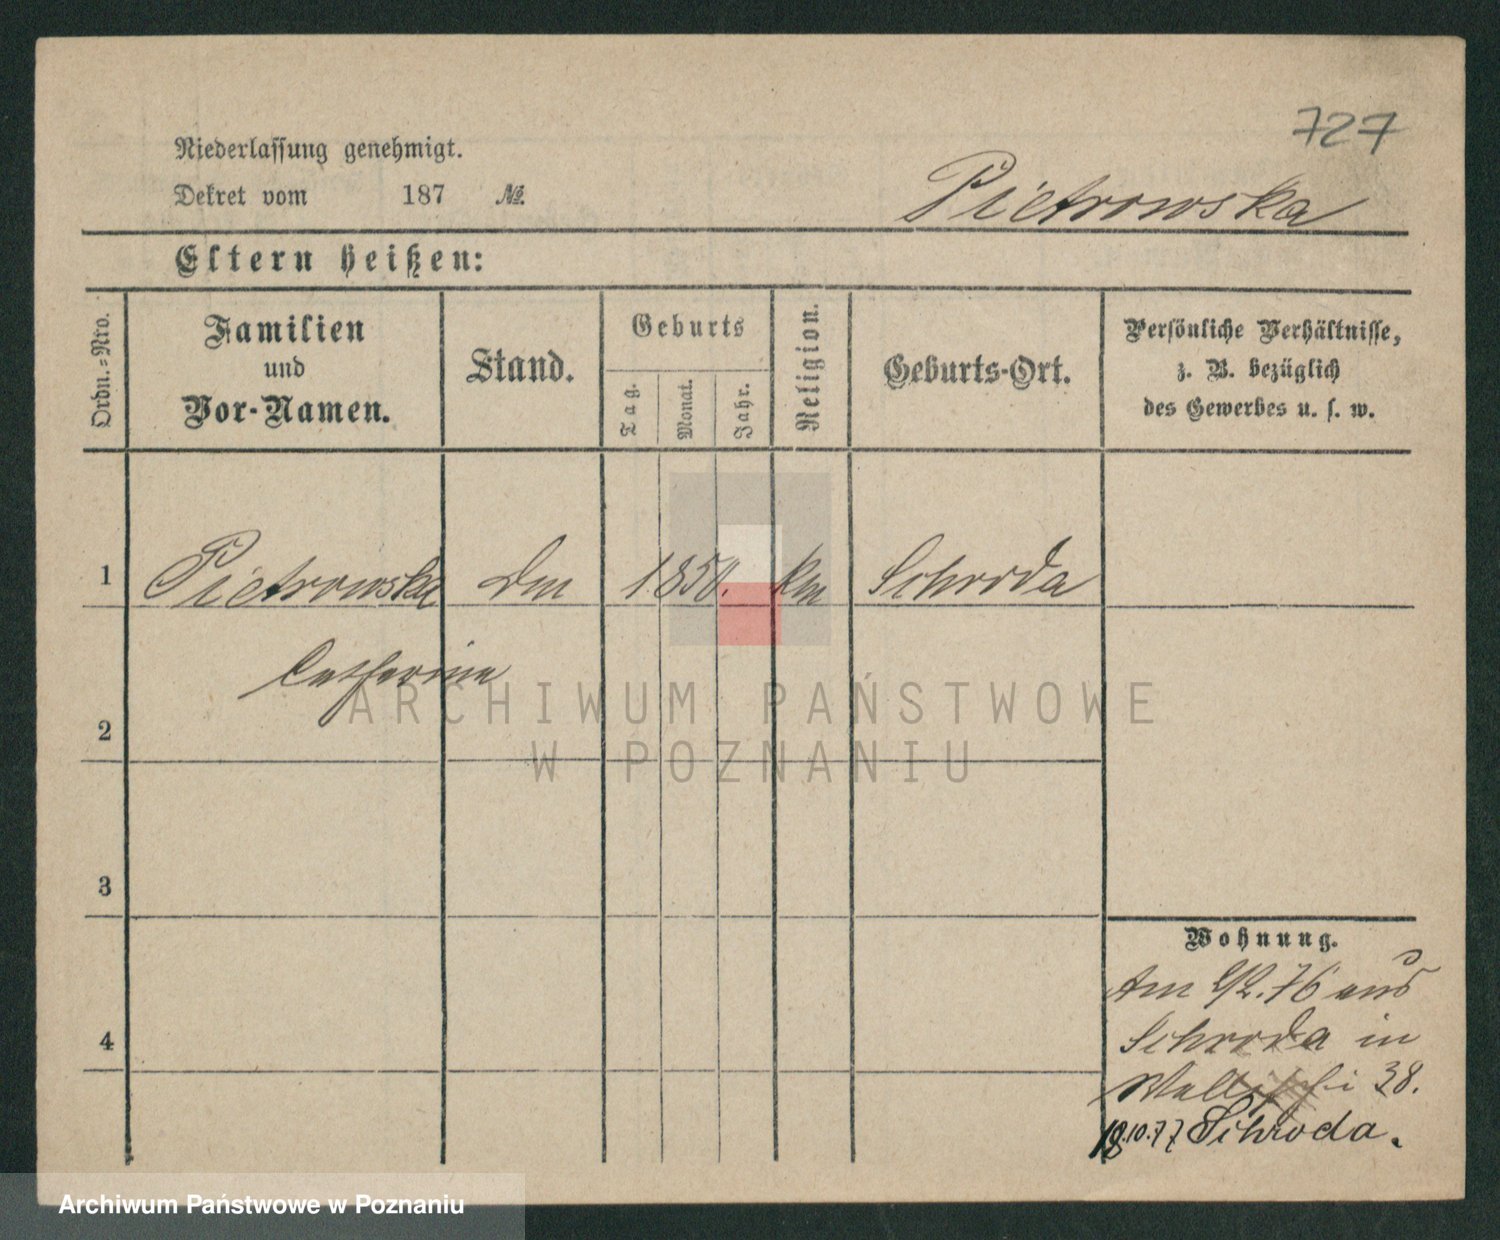 727
Niederlassung genehmigt.
Dekret vom 187 №.
Pietrowska
Eltern heißen:
Ordn.=Nro.
Familien
und
Vor-Namen.
Stand.
Geburts
Tag.
Monat.
Jahr.
Religion.
Geburts-Ort.
Persönliche Verhältnisse,
z. B. bezüglich
des Gewerbes u. s. w.
1 Pietrowska 1850. Schroda
Catharina
2
3
4
Wohnung.
Am 76 aus
Schroda in
38.
18.10.77 Schroda.
ARCHIWUM PAŃSTWOWE
W POZNANIU
Archiwum Państwowe w Poznaniu